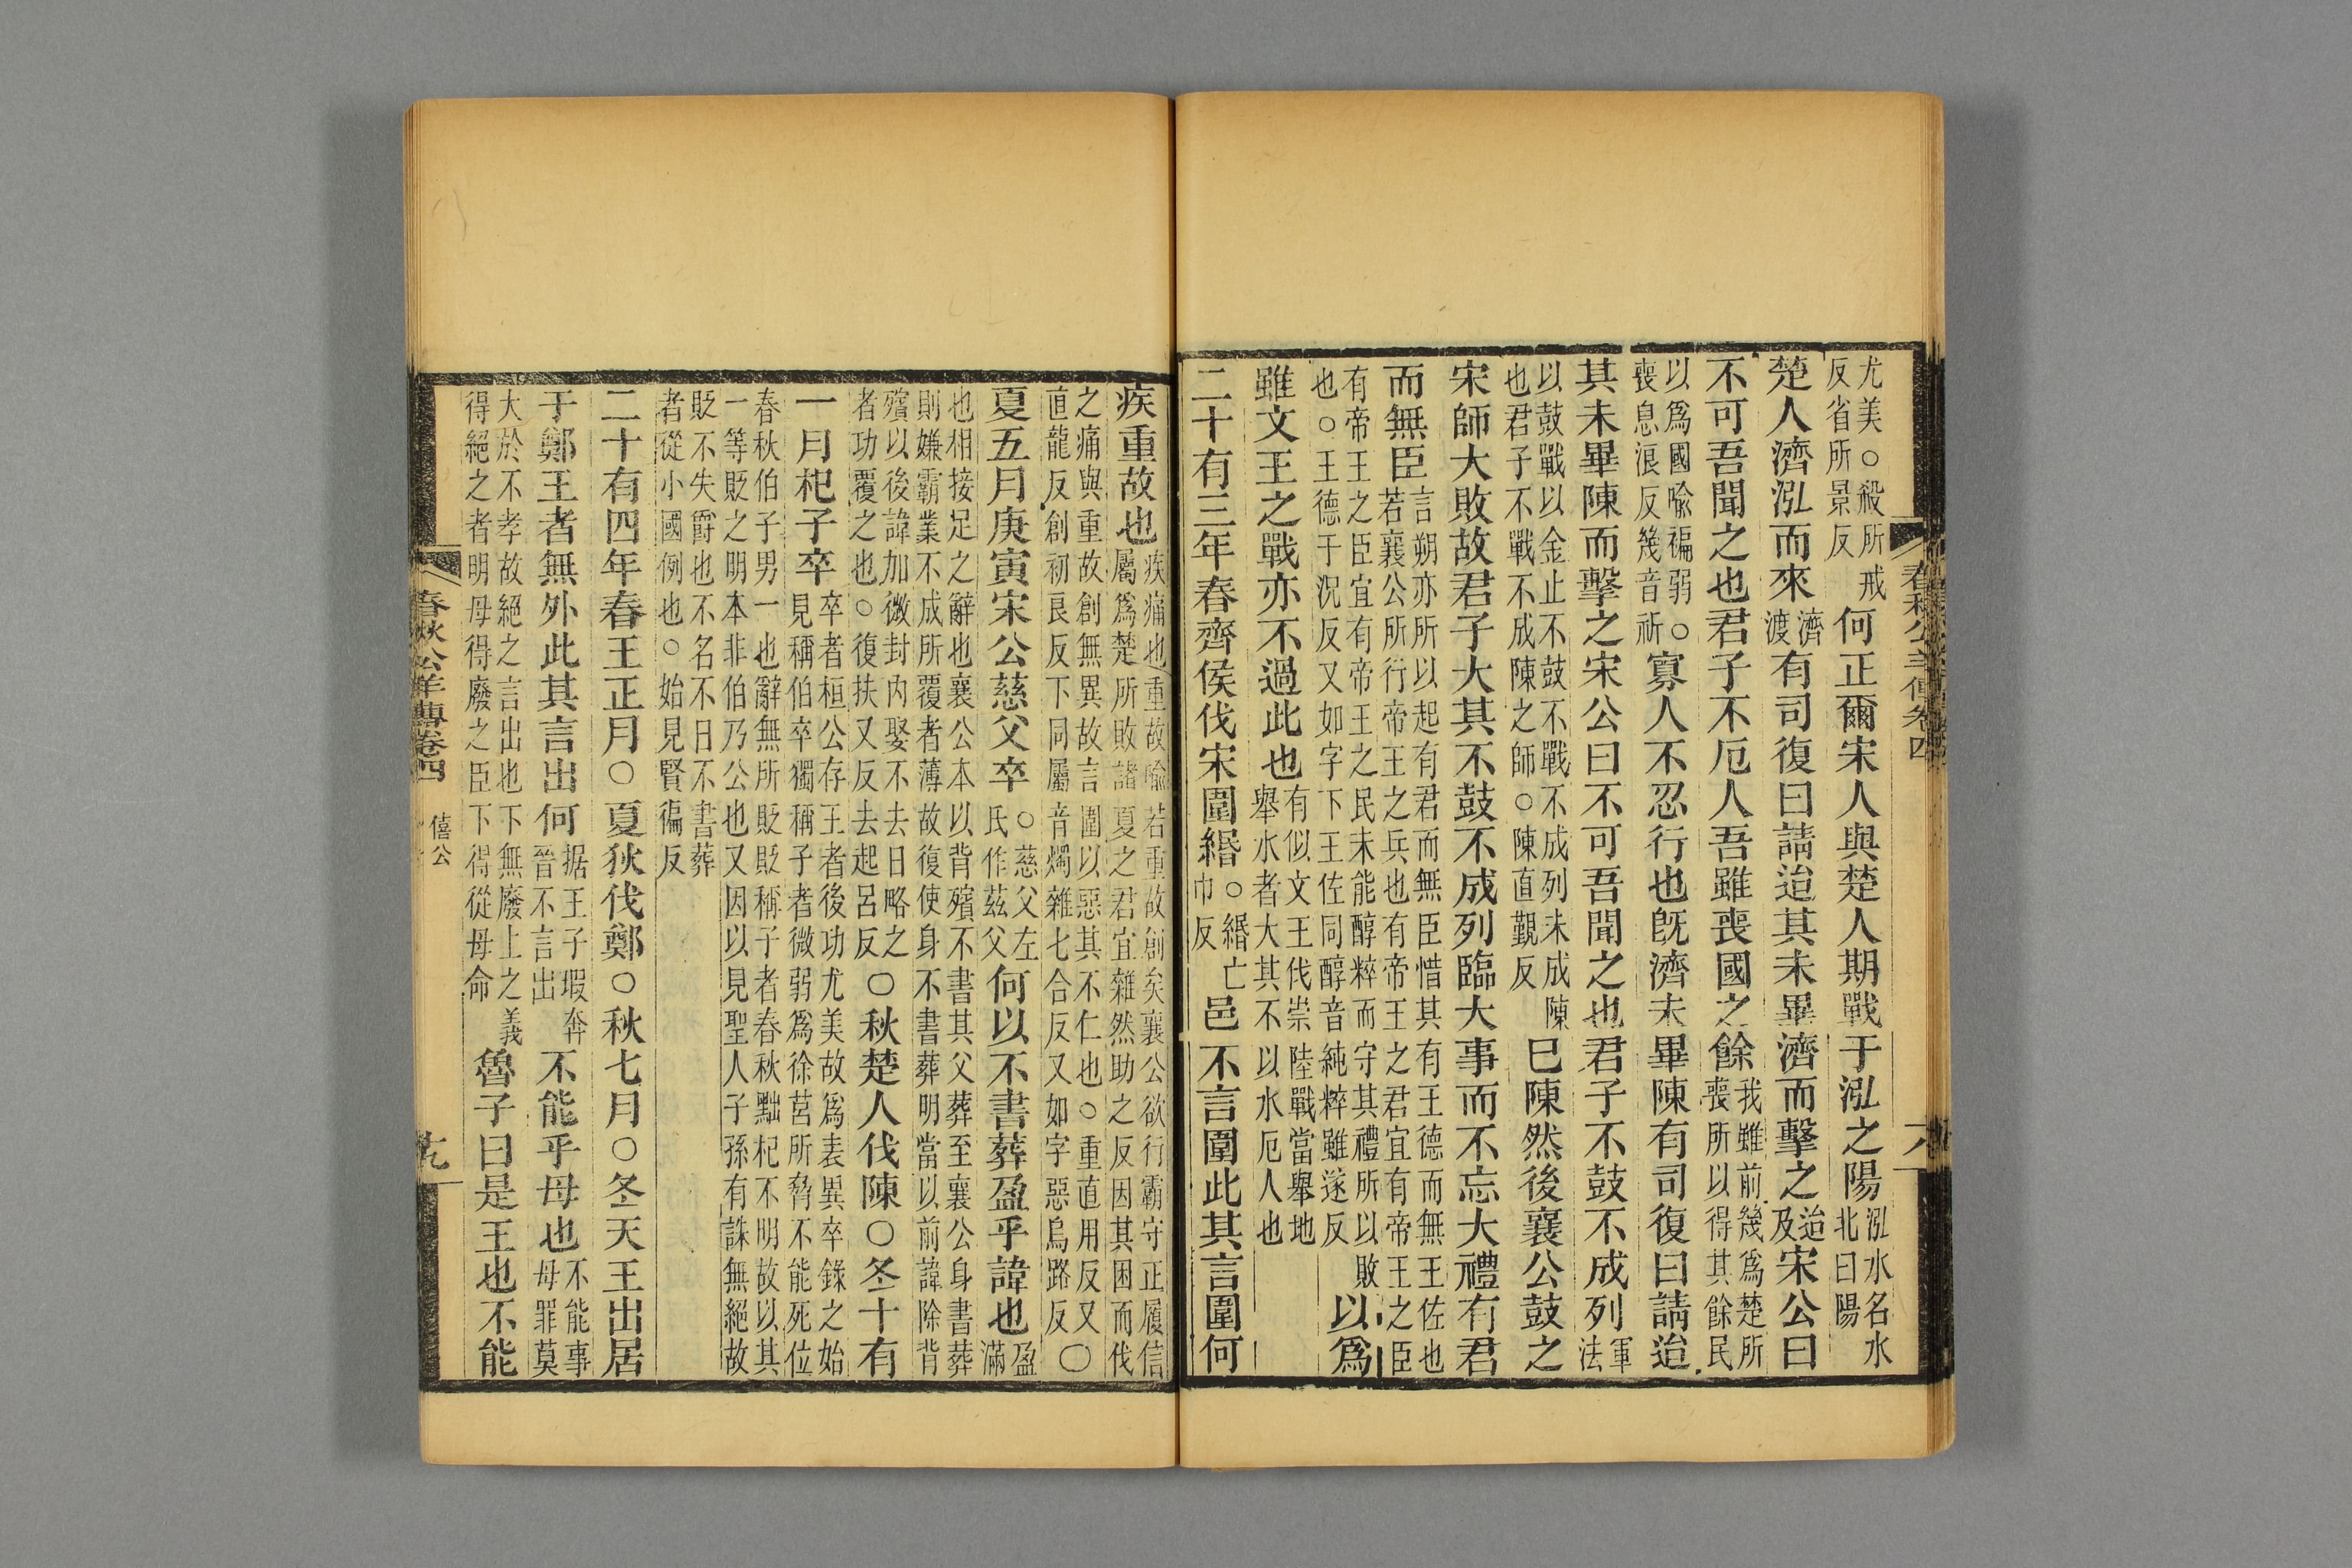 春秋公羊傳卷四
尤美○殺所戒反省所景反何正爾宋人與楚人期戰于泓之陽泓水名水北曰陽
楚人濟泓而來濟渡有司復曰請迨其未畢濟而擊之迨及宋公曰
不可吾聞之也君子不厄人吾雖喪國之餘我雖前幾爲楚所喪所以得其餘民
以爲國喻褊弱○喪息浪反幾音祈寡人不忍行也旣濟未畢陳有司復曰請迨
其未畢陳而擊之宋公曰不可吾聞之也君子不鼓不成列軍法
以鼓戰以金止不鼓不戰不成列未成陳也君子不戰不成陳之師○陳直覲反已陳然後襄公鼓之
宋師大敗故君子大其不鼓不成列臨大事而不忘大禮有君
而無臣言朔亦所以起有君而無臣惜其有王德而無王佐也若襄公所行帝王之兵也有帝王之君宜有帝王之臣
有帝王之臣宜有帝王之民未能醇粹而守其禮所以敗也○王德于況反又如字下王佐同醇音純粹雖遂反以爲
雖文王之戰亦不過此也有似文王伐崇陸戰當舉地舉水者大其不以水厄人也
二十有三年春齊侯伐宋圍緡○緡亡巾反邑不言圍此其言圍何
疾重故也疾痛也重故喻若重故創矣襄公欲行霸守正履信屬爲楚所敗諸夏之君宜雜然助之反因其困而伐
之痛與重故創無異故言圍以惡其不仁也○重直用反又直龍反創初良反下同屬音燭雜七合反又如字惡烏路反○
夏五月庚寅宋公慈父卒○慈父左氏作茲父何以不書葬盈乎諱也盈滿
也相接足之辭也襄公本以背殯不書其父葬至襄公身書葬則嫌霸業不成所覆者薄故復使身不書葬明當以前諱除背
殯以後諱加微封内娶不去日略之者功覆之也○復扶又反去起呂反○秋楚人伐陳○冬十有
一月杞子卒卒者桓公存王者後功尤美故爲表異卒錄之始見稱伯卒獨稱子者微弱爲徐莒所脅不能死位
春秋伯子男一也辭無所貶貶稱子者春秋黜杞不明故以其一等貶之明本非伯乃公也又因以見聖人子孫有誅無絕故
貶不失爵也不名不日不書葬者從小國例也○始見賢徧反
二十有四年春王正月○夏狄伐鄭○秋七月○冬天王出居
于鄭王者無外此其言出何据王子瑕奔晉不言出不能乎母也不能事母罪莫
大於不孝故絕之言出也下無廢上之義得絕之者明母得廢之臣下得從母命魯子曰是王也不能
春秋公羊傳卷四 僖公 十九